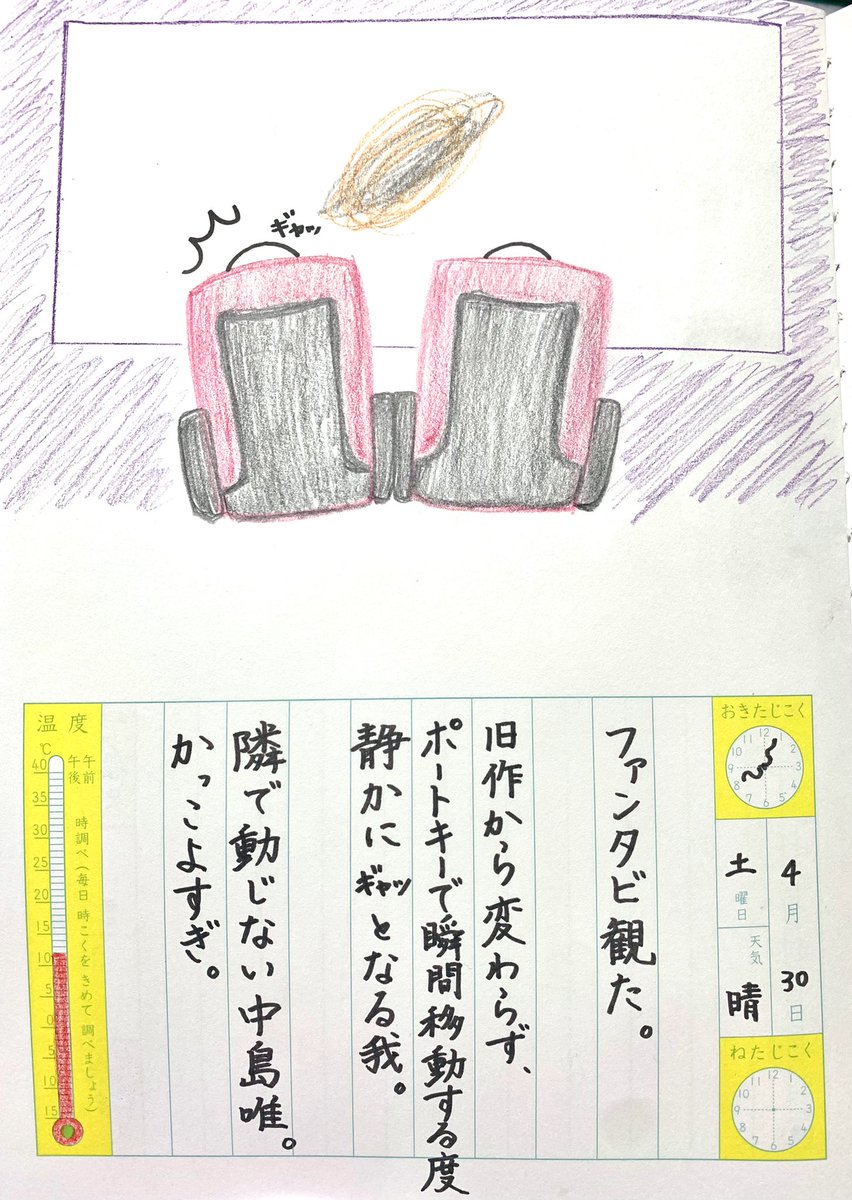 ギャッ
おきたじこく
12
1
2
3
4
5
6
7
8
9
10
11
4月
30日
土曜日
天気
晴
ねたじこく
12
1
2
3
4
5
6
7
8
9
10
11
ファンタビ観た。
旧作から変わらず、
ポートキーで瞬間移動する度
静かにギャッとなる我。
隣で動じない中島唯。
かっこよすぎ。
温度
℃
午前
午後
時調べ(毎日 時こくを きめて 調べましょう)
40
35
30
25
20
15
10
5
0
5
10
15